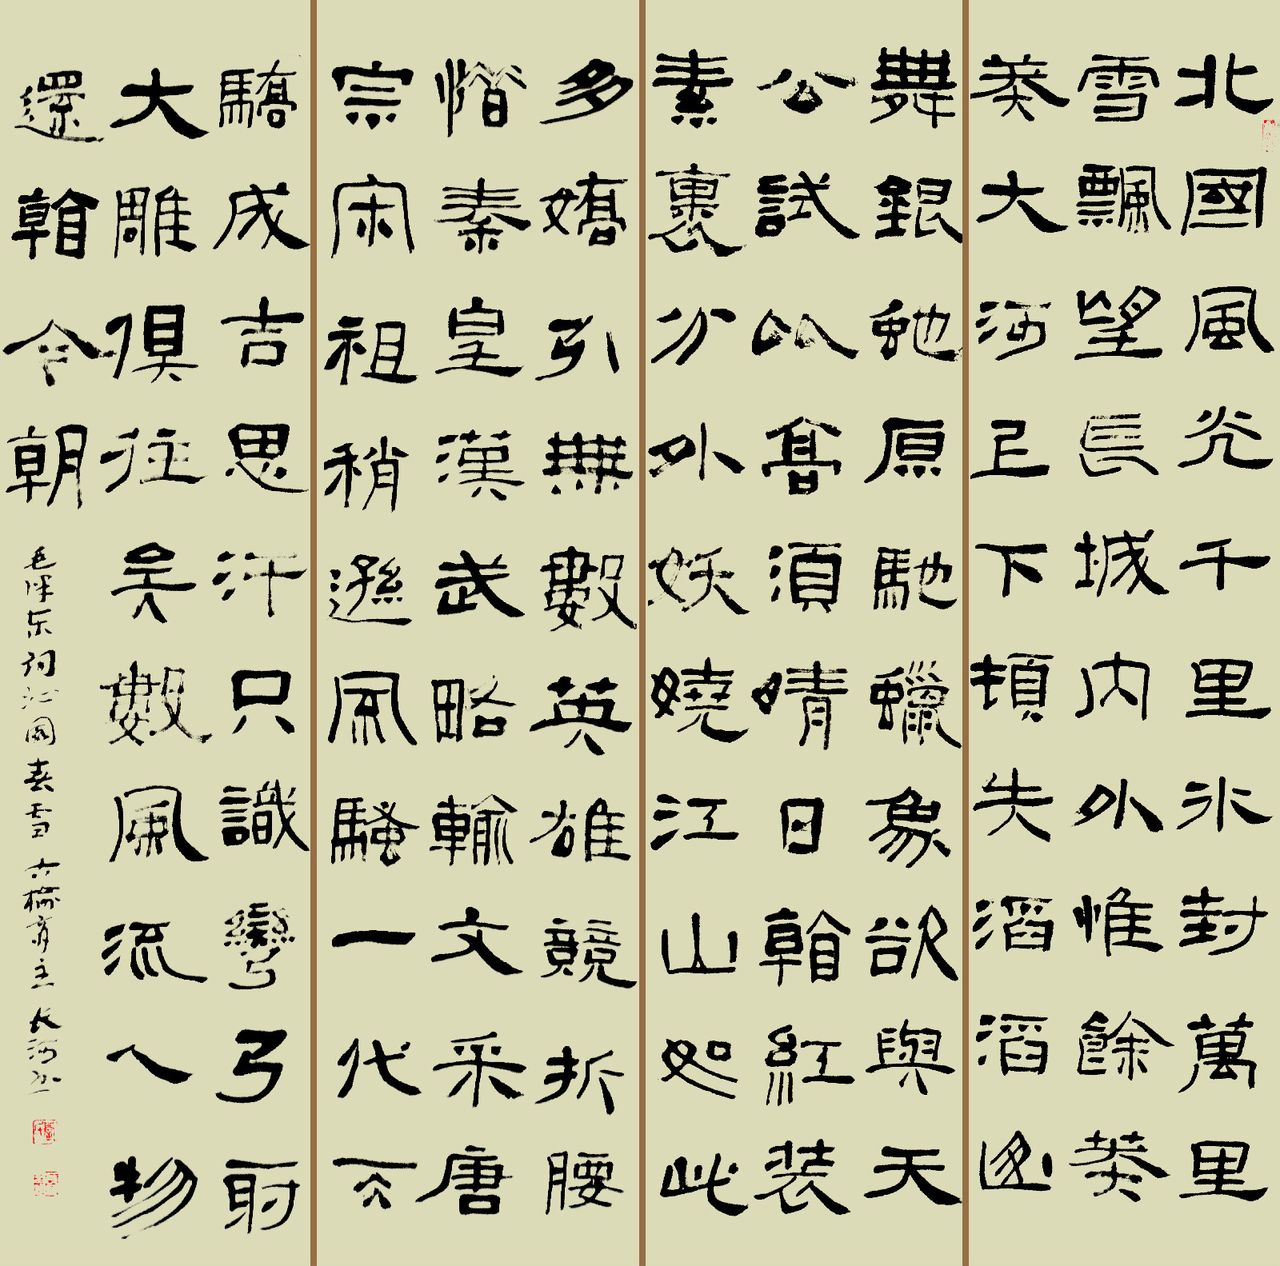 北國風光千里冰封萬里
雪飄望長城內外惟餘莽
莽大河上下頓失滔滔山
舞銀蛇原馳蠟象欲與天
公試比高須晴日看紅裝
素裹分外妖嬈江山如此
多嬌引無數英雄競折腰
惜秦皇漢武略輸文采唐
宗宋祖稍遜風騷一代天
驕成吉思汗只識彎弓射
大雕俱往矣數風流人物
還看今朝
毛泽东词沁園春雪 六榆齋主 长河书